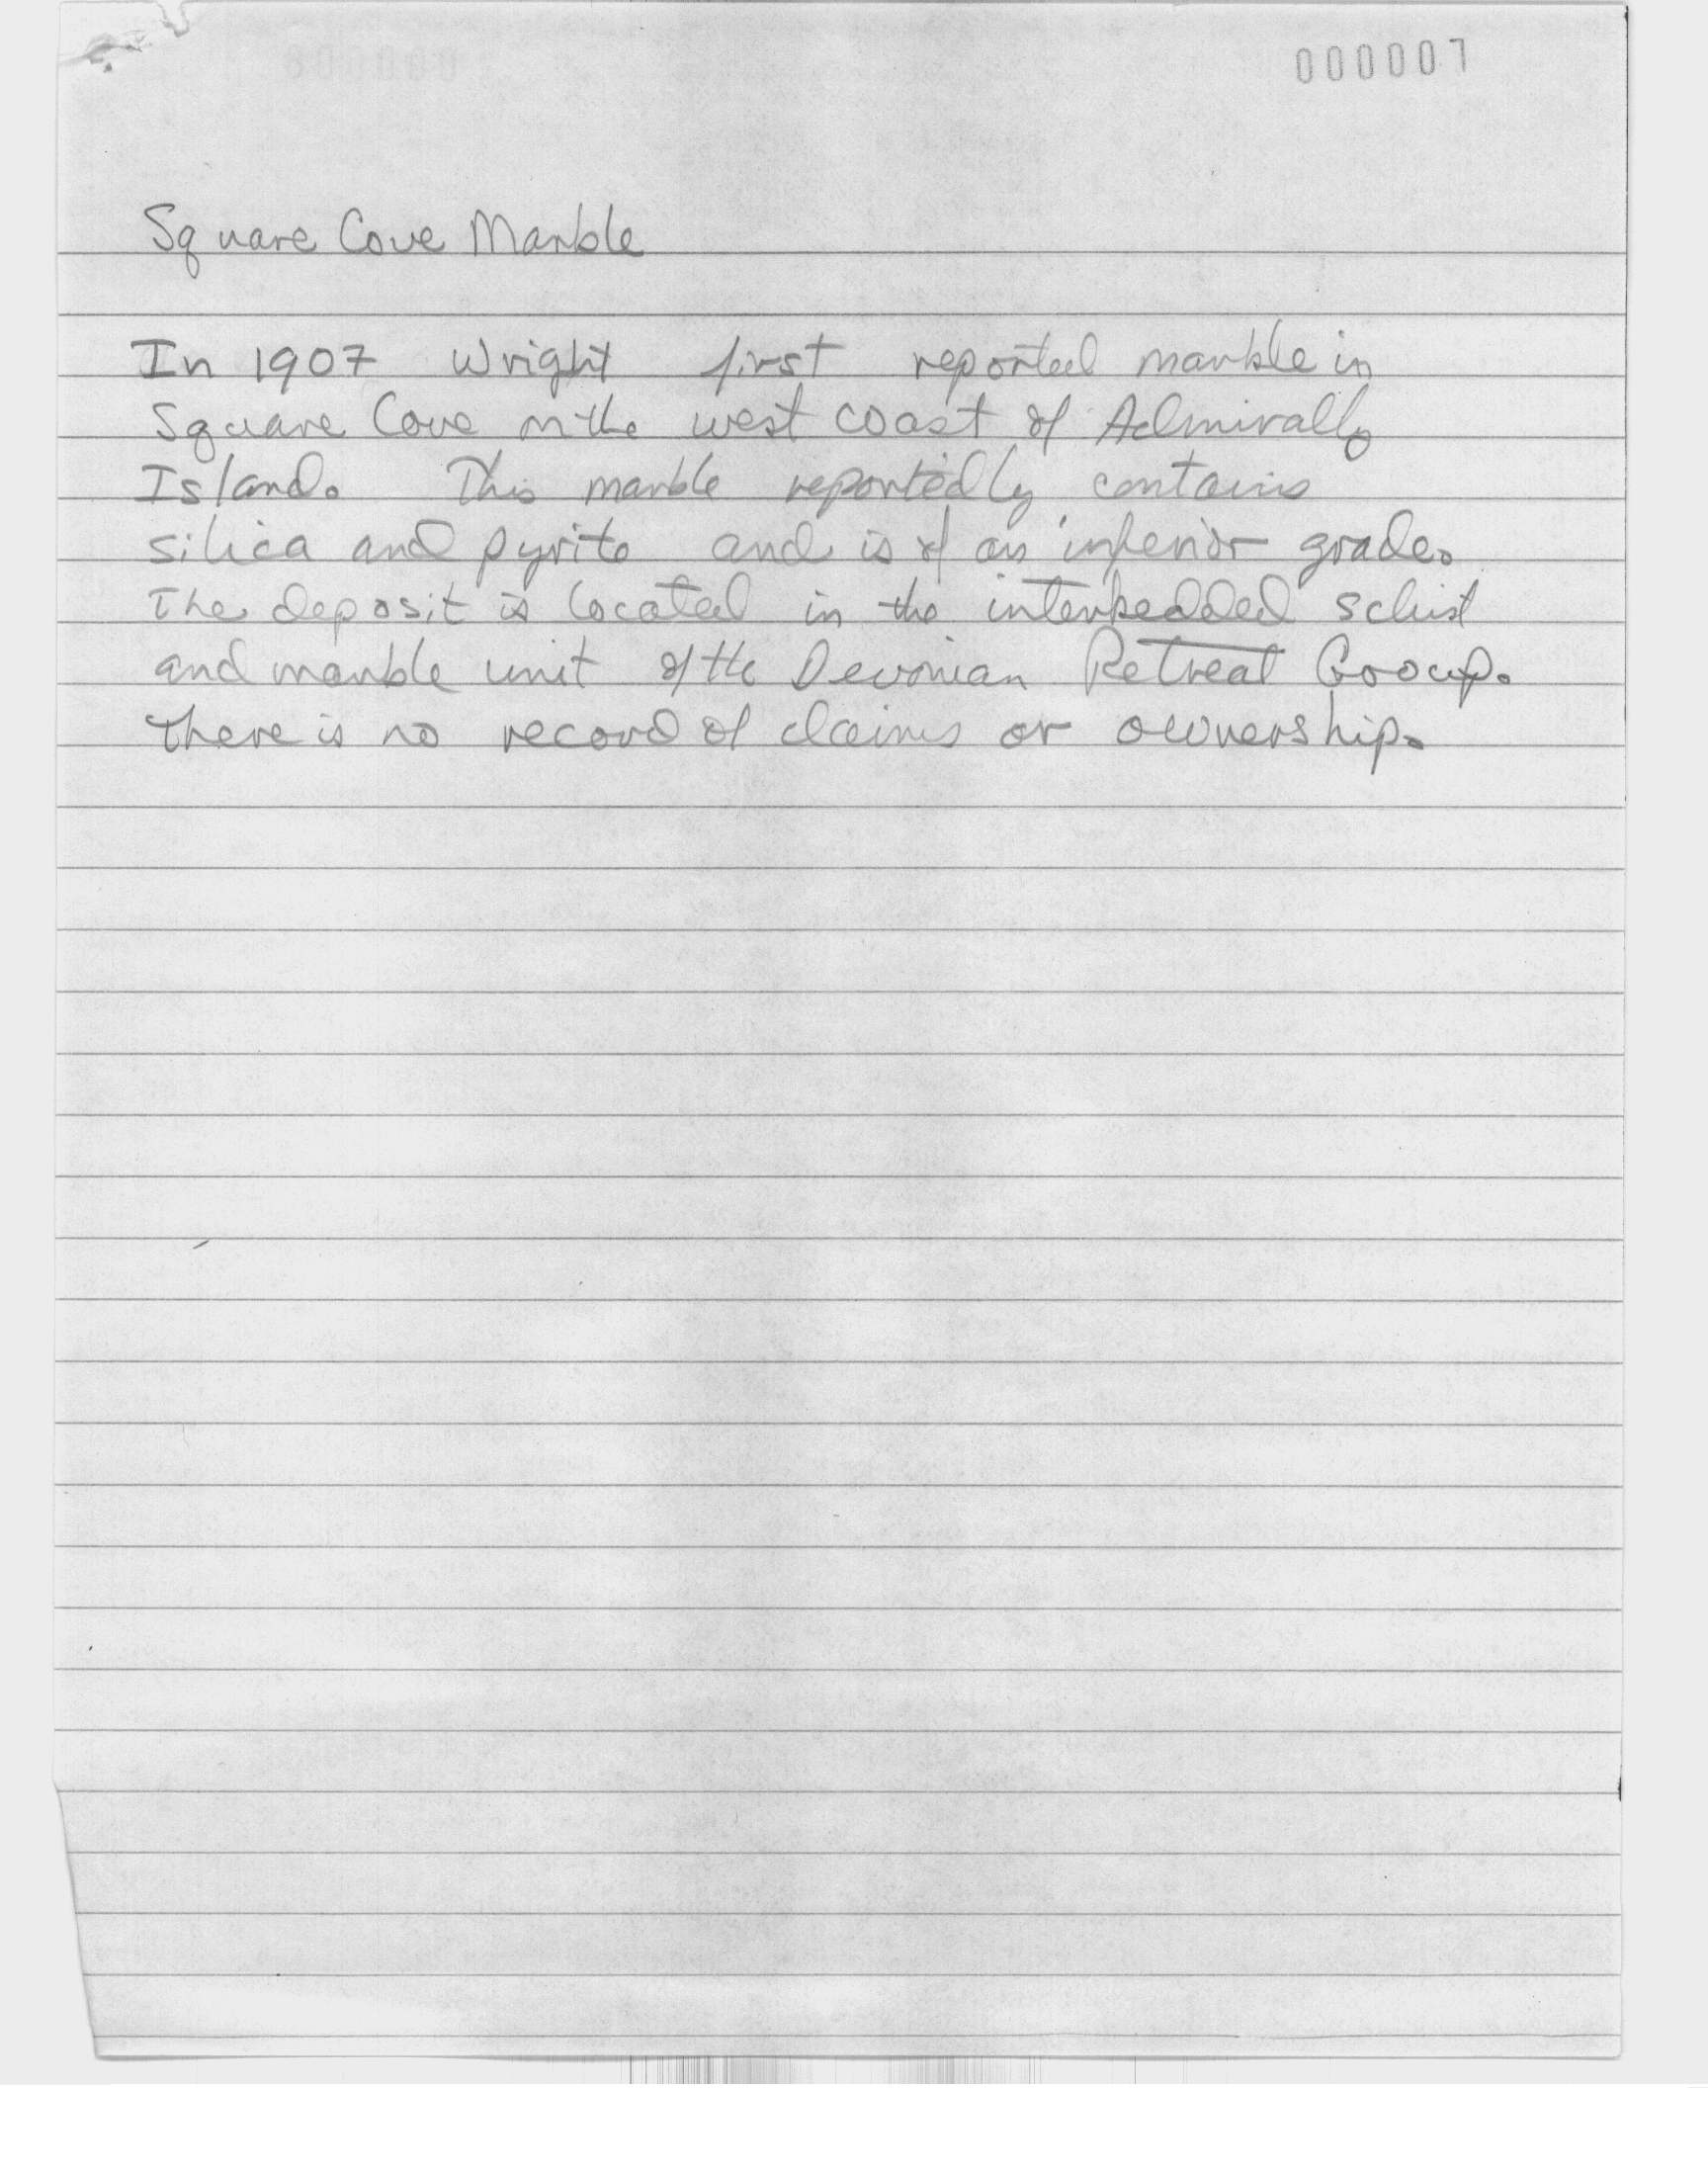 000007
Square Cove Marble
In 1907 Wright first reported marble in
Square Cove on the west coast of Admiralty
Island. This marble reportedly contains
silica and pyrite and is of an inferior grade.
The deposit is located in the interbedded schist
and marble unit of the Devonian Retreat Group.
There is no record of claims or ownership.